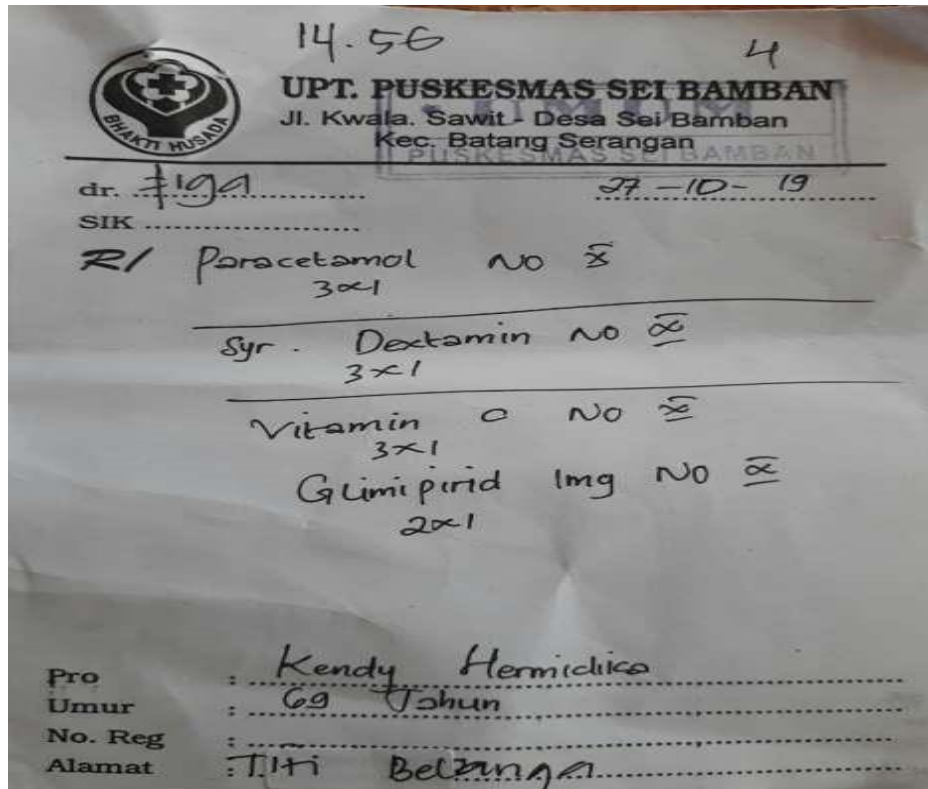 14.56
4
BHAKTI HUSADA
UPT. PUSKESMAS SEI BAMBAN
Jl. Kwala. Sawit - Desa Sei Bamban
Kec. Batang Serangan
PUSKESMAS SEI BAMBAN
dr.
27-10-19
SIK
R/ Paracetamol No X
3x1
Syr. Dextamin No X
3x1
Vitamin C No X
3x1
Glimipirid 1mg No X
2x1
Pro : Kendy
Umur : 69 Tahun
No. Reg :
Alamat : Titi Belanga